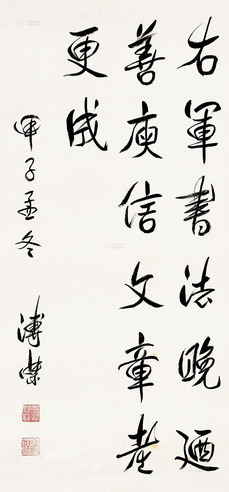 右军書法晚迺
善庾信文章老
更成
甲子孟冬
溥傑